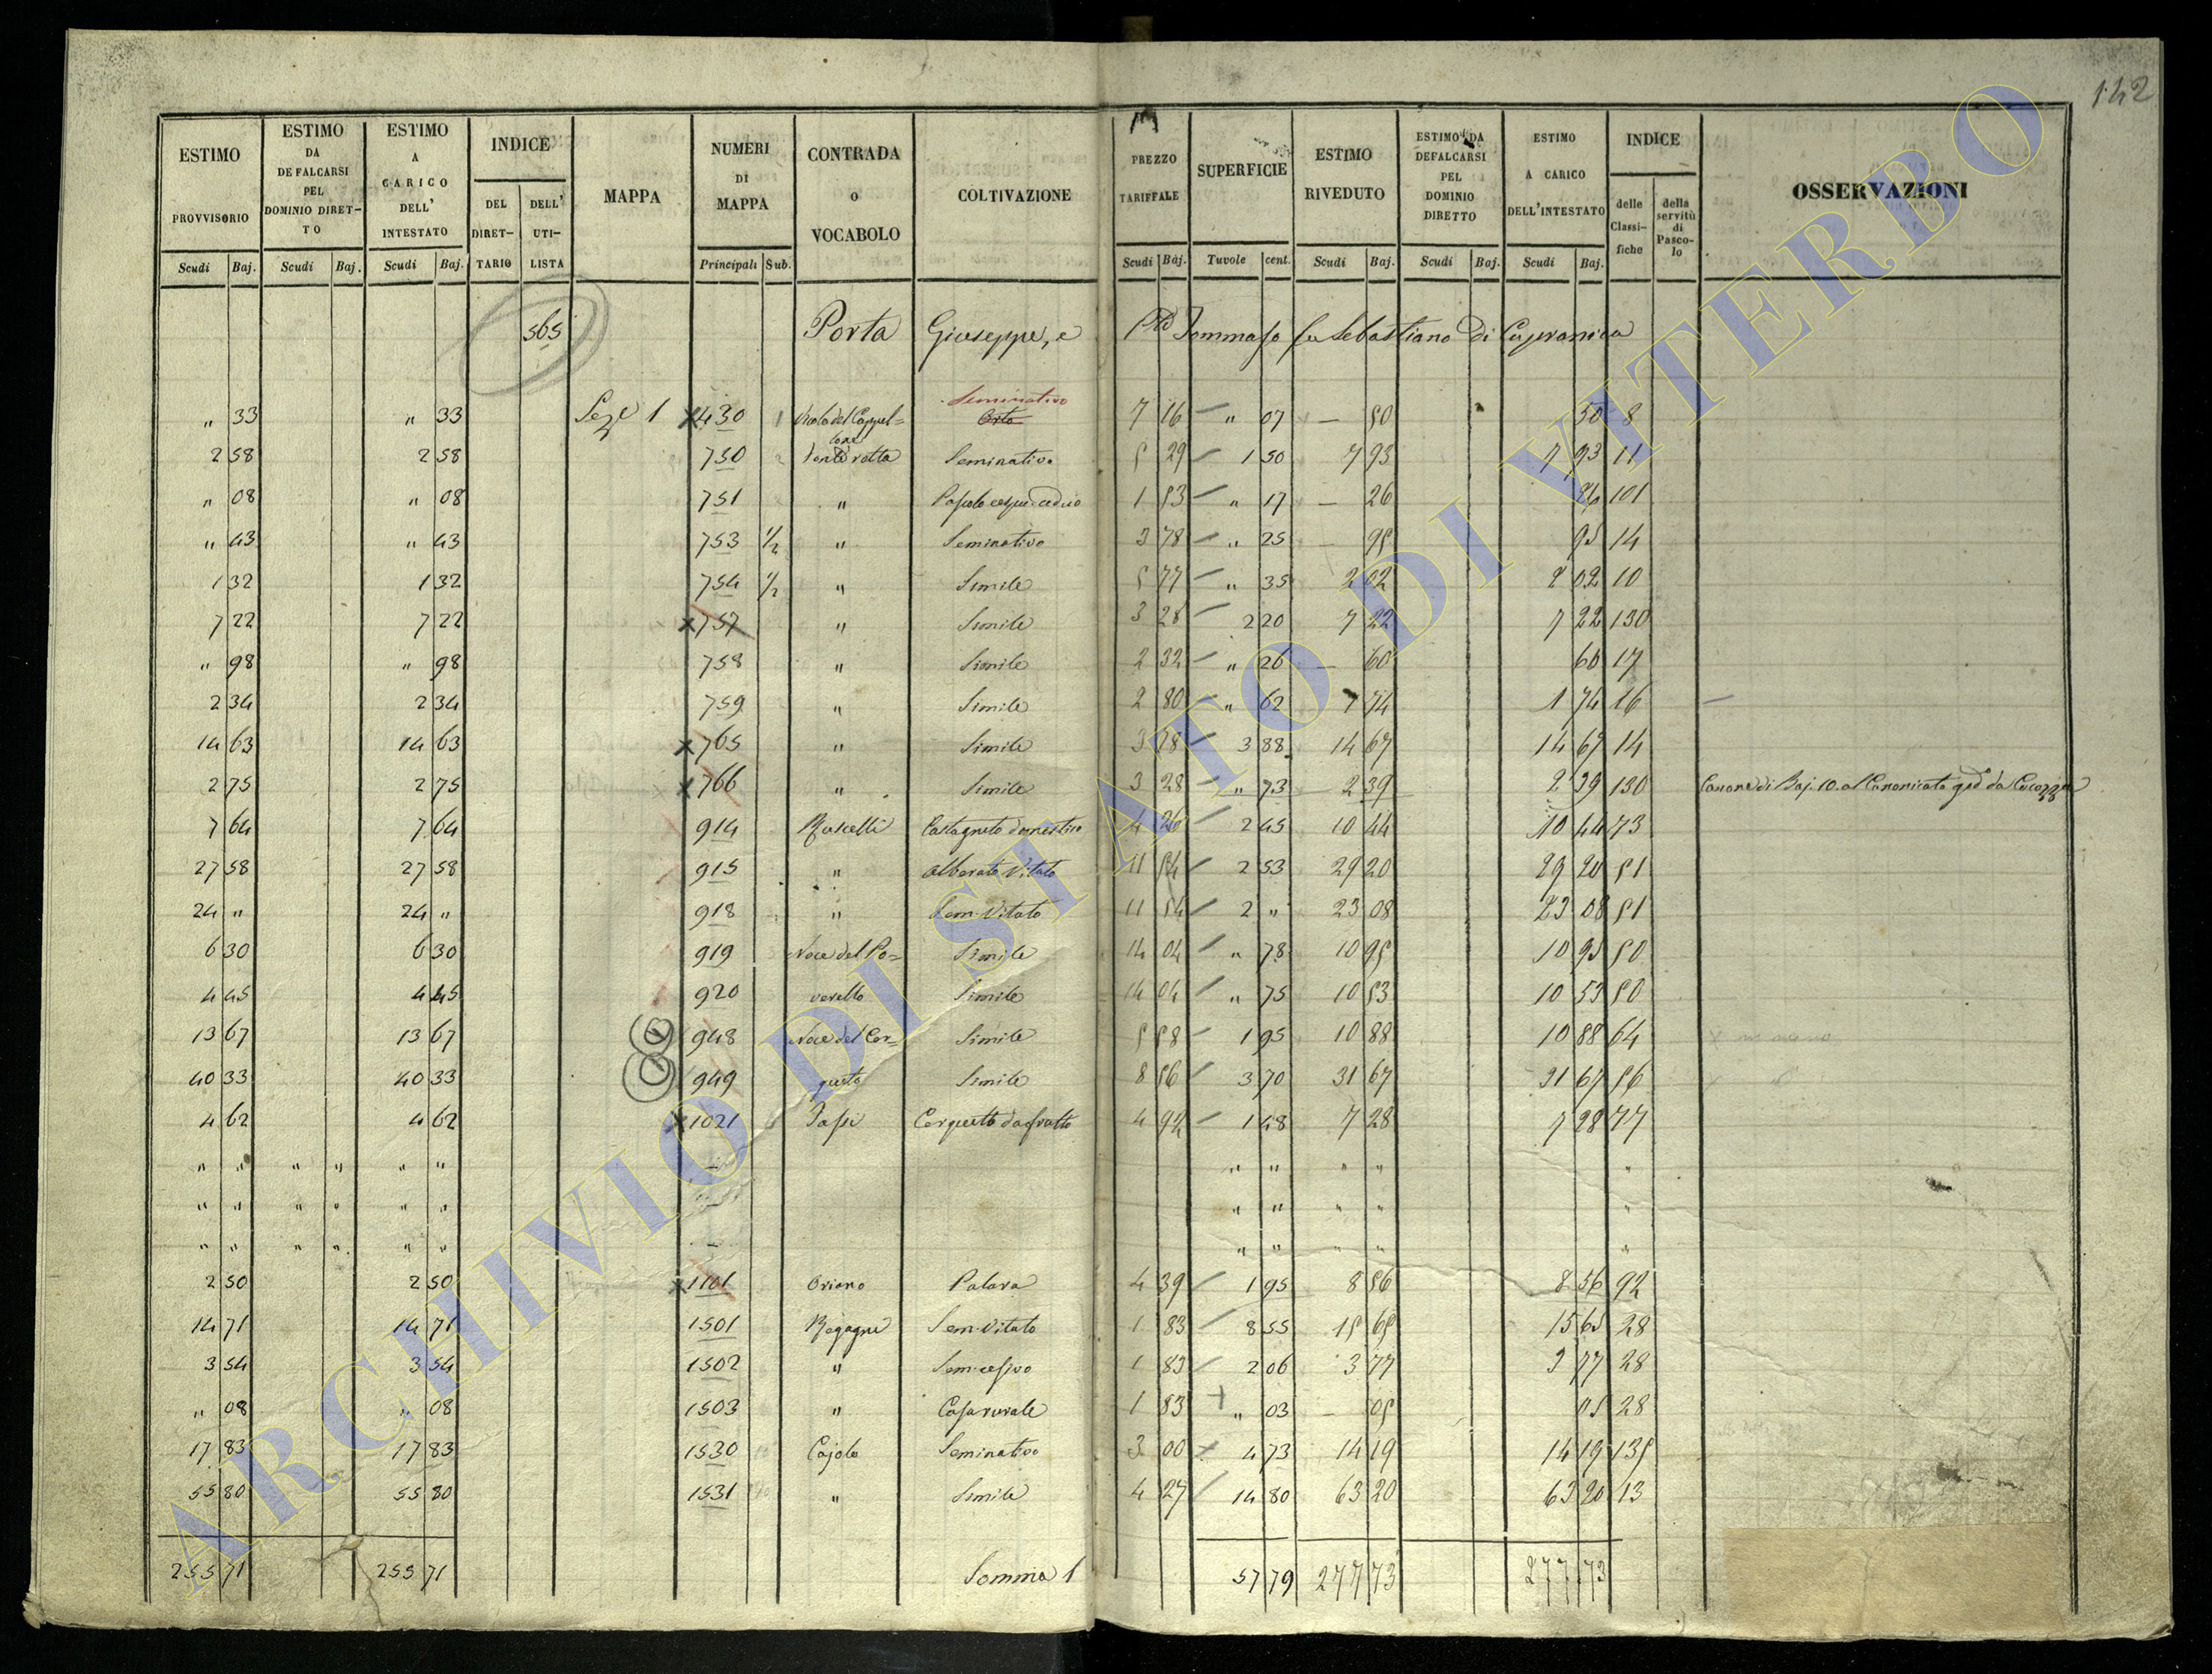 142
ESTIMO PROVVISORIO Scudi Baj. ESTIMO DA DEFALCARSI PEL DOMINIO DIRETTO Scudi Baj. ESTIMO A CARICO DELL' INTESTATO Scudi Baj. INDICE DEL DIRETTARIO DELL' UTILISTA MAPPA NUMERI DI MAPPA Principali Sub. CONTRADA O VOCABOLO COLTIVAZIONE PREZZO TARIFFALE Scudi Baj. SUPERFICIE Tavole cent. ESTIMO RIVEDUTO Scudi Baj. ESTIMO DA DEFALCARSI PEL DOMINIO DIRETTO Scudi Baj. ESTIMO A CARICO DELL'INTESTATO Scudi Baj. INDICE delle Classifiche della servitù di Pascolo OSSERVAZIONI
565 Porta Giuseppe, e Tommaso fu Sebastiano di Capranica
Seminativo
" 33 " 33 Sez.e 1 430 1 Vicolo del Cappel= Orto 7 16 " 07 — 50 50 8
lone
2 58 2 58 750 Seminativo 5 29 1 50 7 93 7 93 11
" 08 " 08 751 " 1 53 " 17 — 26 26 101
" 43 " 43 753 1/2 " Seminativo 3 78 " 25 95 95 14
1 32 1 32 754 1/2 " Simile 5 77 " 35 2 02 2 02 10
7 22 7 22 757 " Simile 3 28 2 20 7 22 7 22 130
" 98 " 98 758 " Simile 2 32 " 26 — 60 60 17
2 34 2 34 759 " Simile 2 80 " 62 1 74 1 74 16
14 63 14 63 765 " Simile 3 78 3 88 14 67 14 67 14
2 75 2 75 766 " Simile 3 28 " 73 2 39 2 39 130 Canone di Baj. 10. al Canonicato
7 64 7 64 914 Ruscelli Castagneto domestico 4 26 2 45 10 44 10 44 73
27 58 27 58 915 " Alberato Vitato 11 54 2 53 29 20 29 20 51
24 " 24 " 918 " Sem. Vitato 11 54 2 " 23 08 23 08 51
6 30 6 30 919 Noce del Po= Simile 14 04 " 78 10 95 10 95 50
4 45 4 45 920 verello Simile 14 04 " 75 10 53 10 53 50
13 67 13 67 948 Noce del Cer= Simile 5 58 1 95 10 88 10 88 64
40 33 40 33 949 queto Simile 8 56 3 70 31 67 31 67 56
4 62 4 62 1021 Cerqueto da frutto 4 92 1 48 7 28 7 28 77
" " " " " " — " " " " "
" " " " " " — " " " " "
" " " " " " — " " " " "
2 50 2 50 1101 Oriano 4 39 1 95 8 56 8 56 92
14 71 14 71 1501 Sem. Vitato 1 83 8 55 15 65 15 65 28
3 54 3 54 1502 " 1 83 2 06 3 77 3 77 28
" 08 " 08 1503 " Casa rurale 1 83 " 03 — 05 05 28
17 83 17 83 1530 Cajolo Seminativo 3 00 4 73 14 19 14 19 135
55 80 55 80 1531 " Simile 4 27 14 80 63 20 63 20 13
255 71 255 71 Somma 1 57 79 277 73 277 73
ARCHIVIO DI STATO DI VITERBO